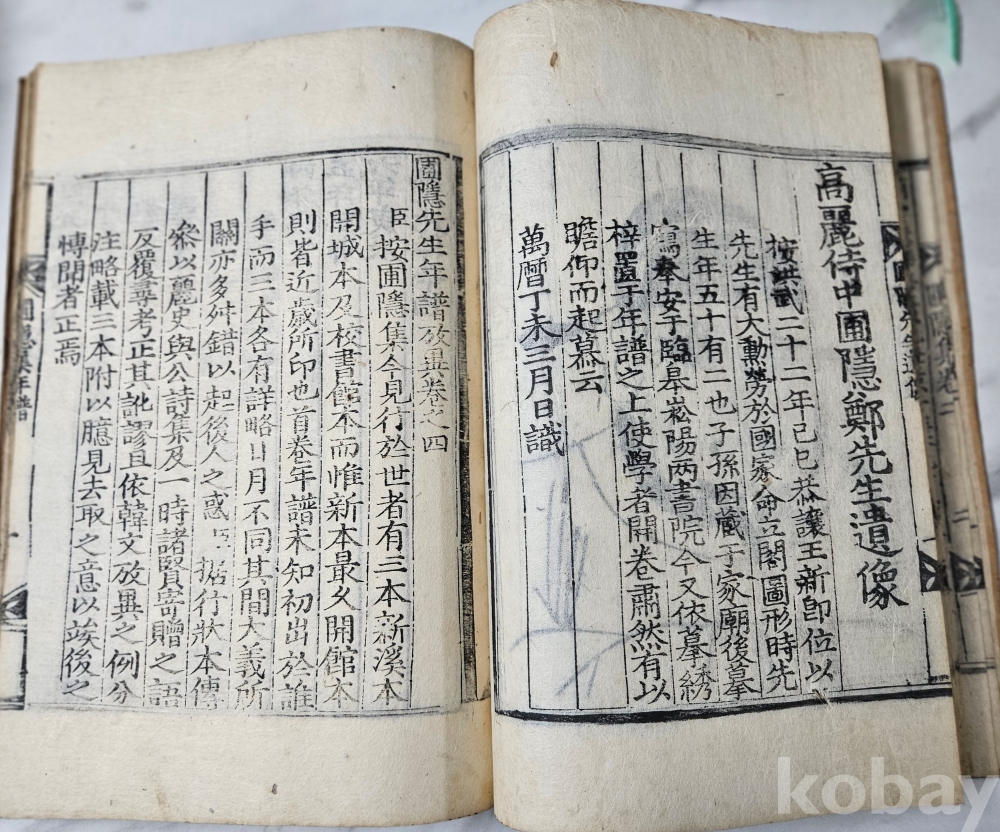 高麗侍中圃隱鄭先生遺像
按洪武二十二年己巳恭讓王新即位以
先生有大勳勞於國家命立閣圖形時先
生年五十有二也子孫因藏于家廟後摹
寫奉安于臨皐崧陽两書院今又依摹綉
梓置于年譜之上使學者開卷肅然有以
瞻仰而起慕云
萬曆丁未三月日識
圃隱先生年譜攷異卷之四
臣按圃隱集今見行於世者有三本新溪本
開城本及校書館本而惟新本最久開館本
則皆近歲所印也首卷年譜未知初出於誰
手而三本各有詳略日月不同其間大義所
關亦多舛錯以起後人之惑臣據行狀本傳
叅以麗史與公詩集及一時諸賢寄贈之語
反覆尋考正其訛謬且依韓文攷異之例分
注略載三本附以臆見去取之意以竢後之
博聞者正焉
圃隱集年譜
kobay